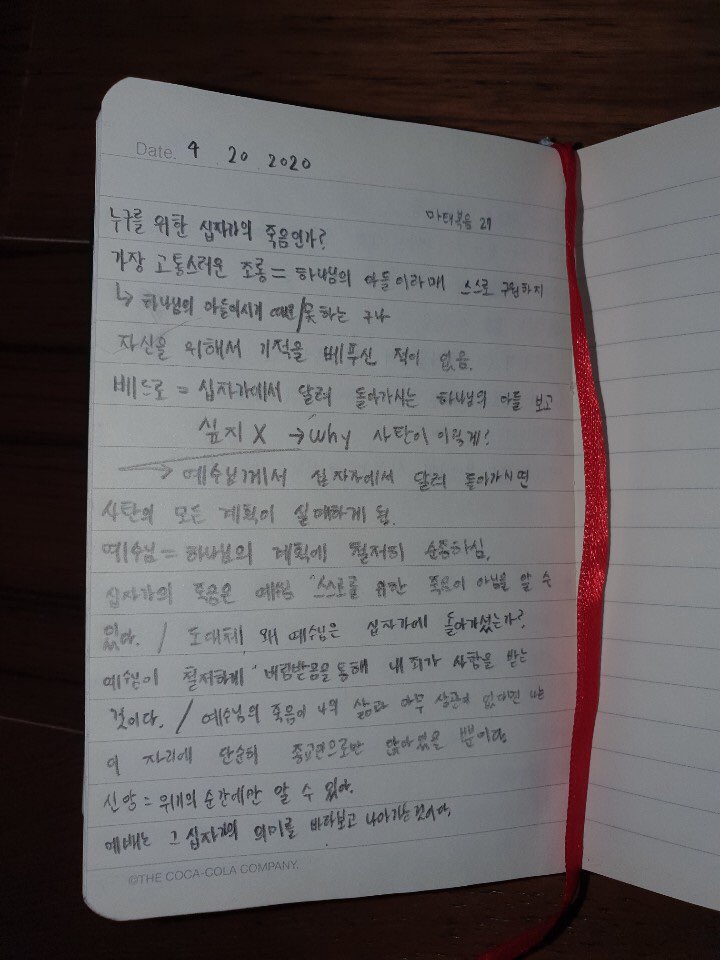 Date. 9 20 2020
마태복음 27
누구를 위한 십자가의 죽음인가?
가장 고통스러운 조롱 = 하나님의 아들이라매 스스로 구원하지
↳ 하나님의 아들이시기 때문/못하는 구나
자신을 위해서 기적을 베푸신 적이 없음.
베드로 = 십자가에서 달려 돌아가시는 하나님의 아들 보고
싶지 X → why 사탄이 이렇게?
→ 예수님께서 십자가에서 달려 돌아가시면
사탄의 모든 계획이 실패하게 됨.
예수님 = 하나님의 계획에 철저히 순종하심.
십자가의 죽음은 예수님 "스스로를 위한 죽음이 아님을 알 수
있다. / 도대체 왜 예수님은 십자가에 돌아가셨는가?
예수님이 철저하게 "버림받음을 통해 내 죄가 사함을 받는
것이다. / 예수님의 죽음이 나의 삶과 아무 상관이 없다면 나는
이 자리에 단순히 종교인으로만 앉아있을 뿐이다
신앙 = 위기의 순간에만 알 수 있다.
예배는 그 십자가의 의미를 바라보고 나아가는 것이다.
©THE COCA-COLA COMPANY.